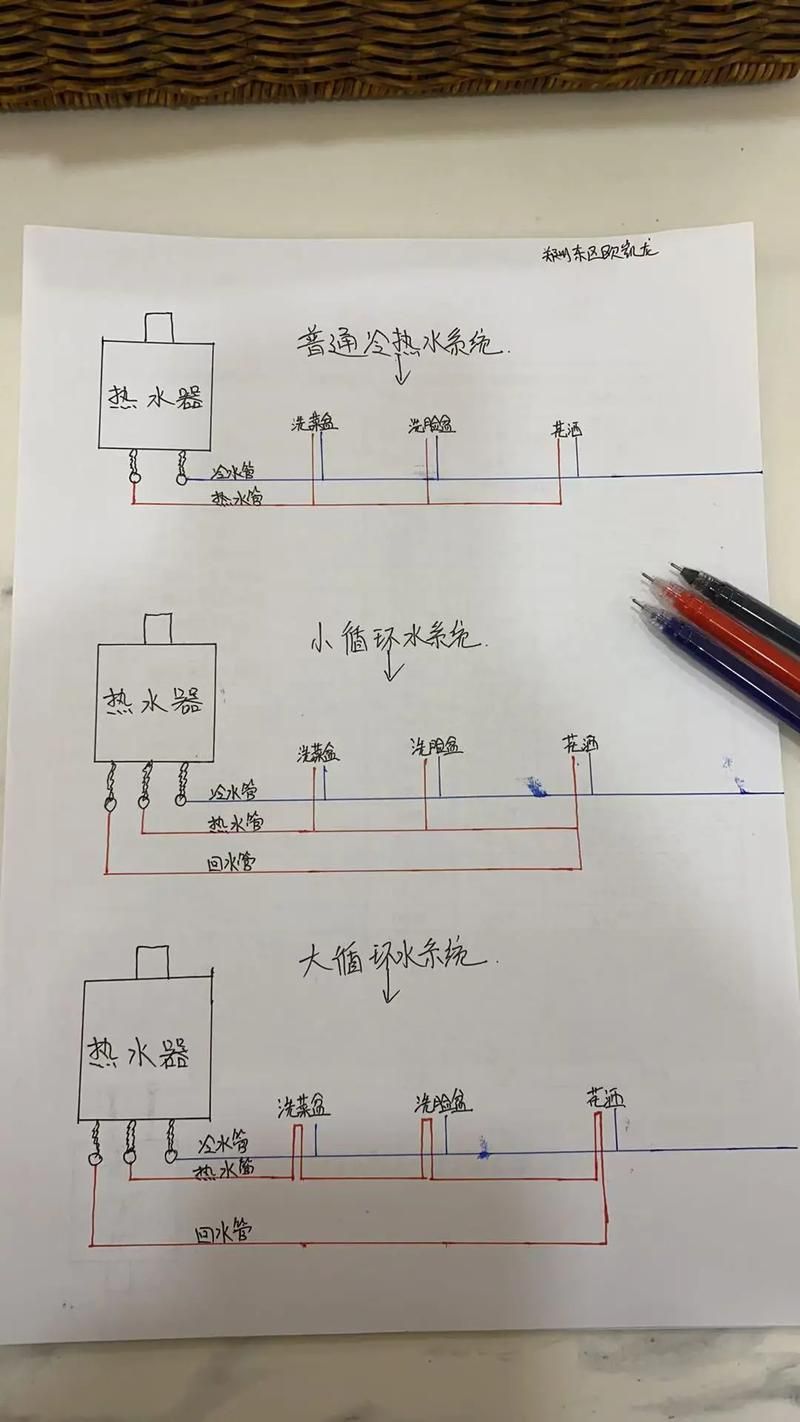 郑州东区欧凯龙
普通冷热水系统.
热水器
洗菜盆 洗脸盆 花洒
冷水管
热水管
小循环水系统.
热水器
洗菜盆 洗脸盆 花洒
冷水管
热水管
回水管
大循环水系统.
热水器
洗菜盆 洗脸盆 花洒
冷水管
热水管
回水管